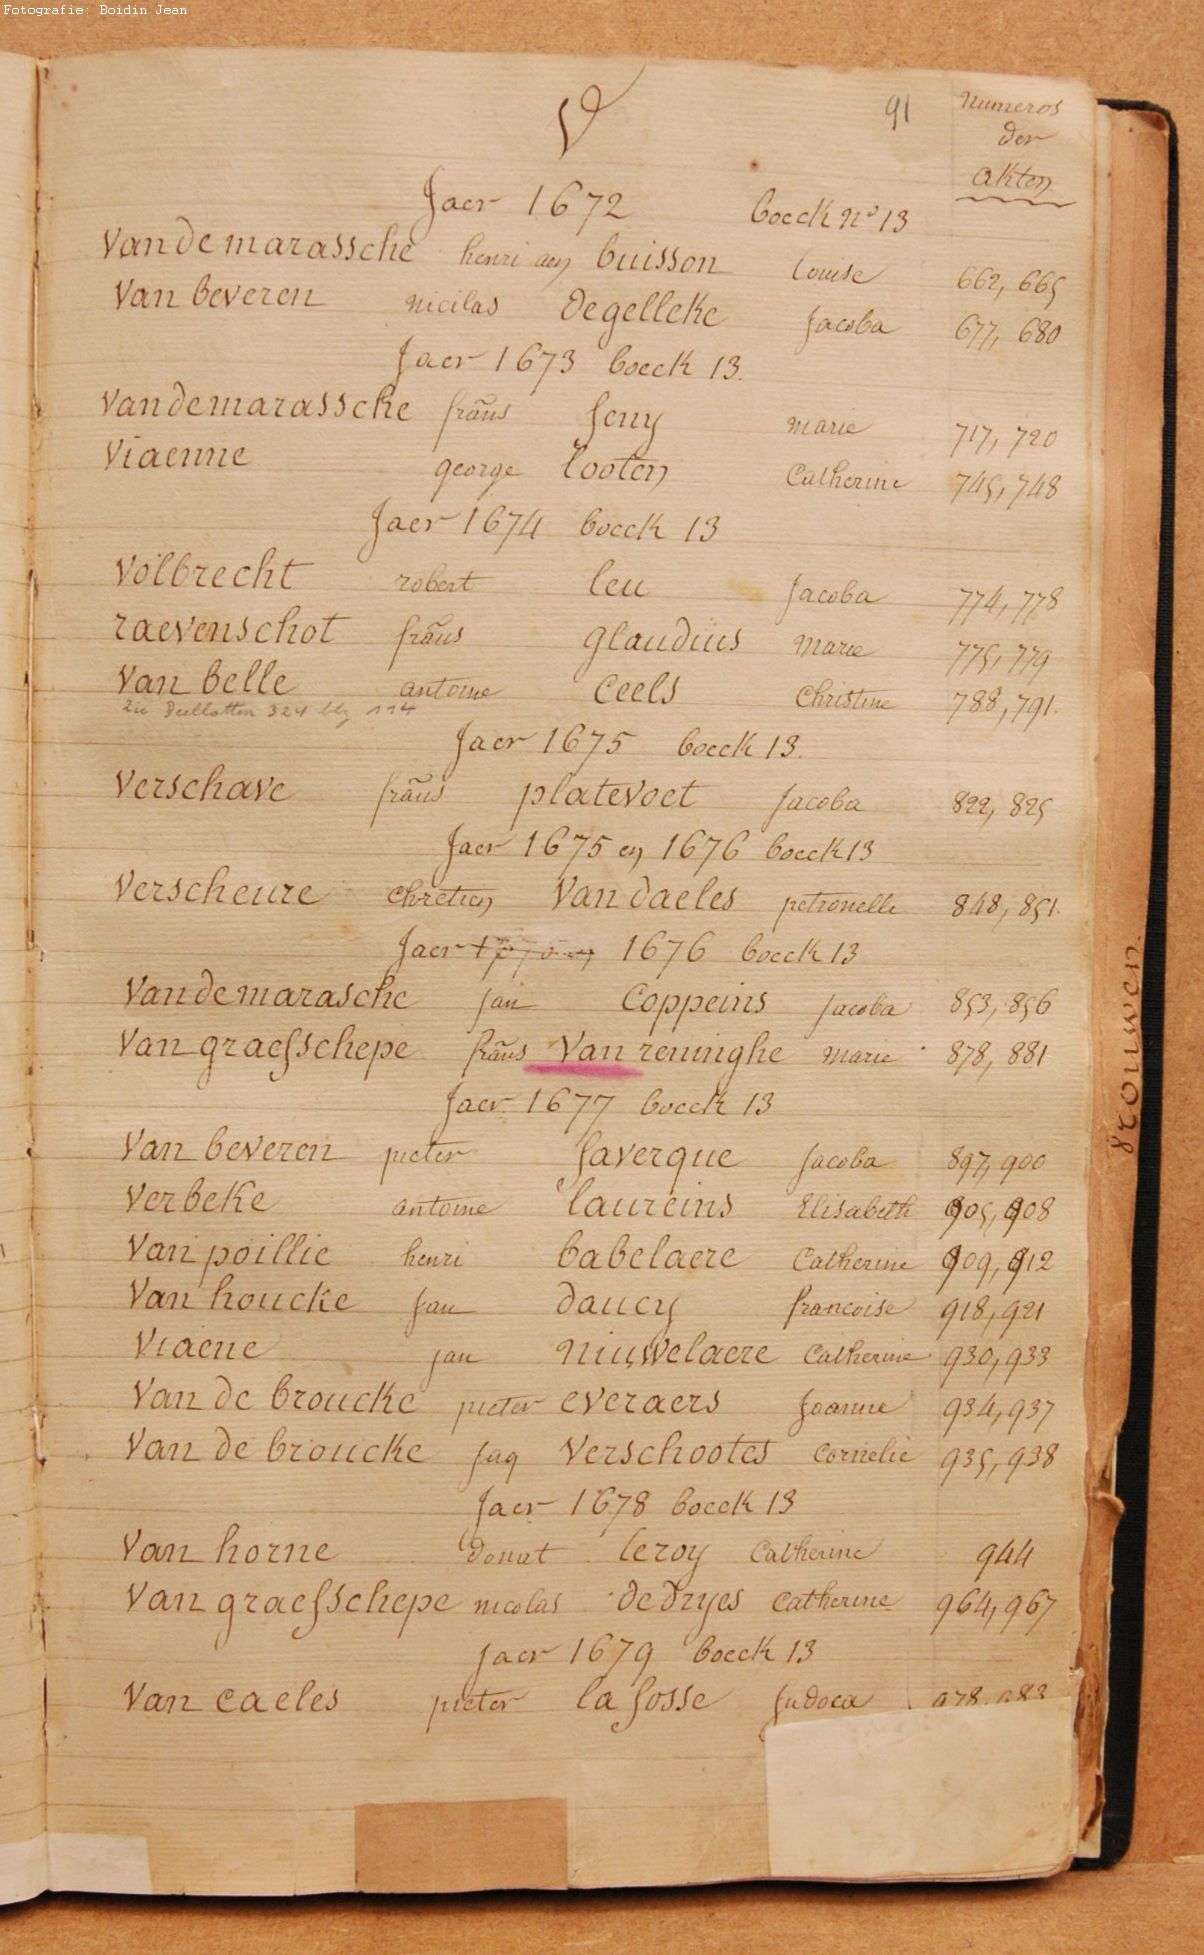 Fotografie: Boidin Jean
V
91
numeros
der
akten
Jaer 1672 boeck nº 13
Vandemarassche henri aen buisson louise 662, 665
Van beveren nicilas degelleke Jacoba 677, 680
Jaer 1673 boeck 13.
Vandemarassche frãus feny marie 717, 720
Viaenne george looten Catherine 745, 748
Jaer 1674 boeck 13
Volbrecht robert leu Jacoba 774, 778
raevenschot frãus glaudius marie 775, 779
Van belle antoine ceels christine 788, 791.
324 blz 114
Jaer 1675 boeck 13.
Verschave frãus platevoet Jacoba 822, 825
Jaer 1675 en 1676 boeck 13
Verscheure chretien Vandaeles petronelle 848, 851.
Jaer 1676 boeck 13
Vandemarasche jan Coppeins jacoba 853, 856
Van graefschepe frãus Van reninghe marie 878, 881
Jaer 1677 boeck 13
Van beveren pieter faverque Jacoba 897, 900
Verbeke antoine laureins Elisabeth 905, 908
Van poillie henri babelaere Catherine 909, 912
Van houcke Jan daucy francoise 918, 921
Viaene jan niuwelaere Catherine 930, 933
Van de broucke pieter everaers Joanne 934, 937
Van de broucke Jaq Verschootes Cornelie 935, 938
Jaer 1678 boeck 13
Van horne donat leroy Catherine 944
Van graefschepe nicolas dedryes Catherine 964, 967
Jaer 1679 boeck 13
Van caeles pieter la fosse Judoca 978, 983
vrouwen.